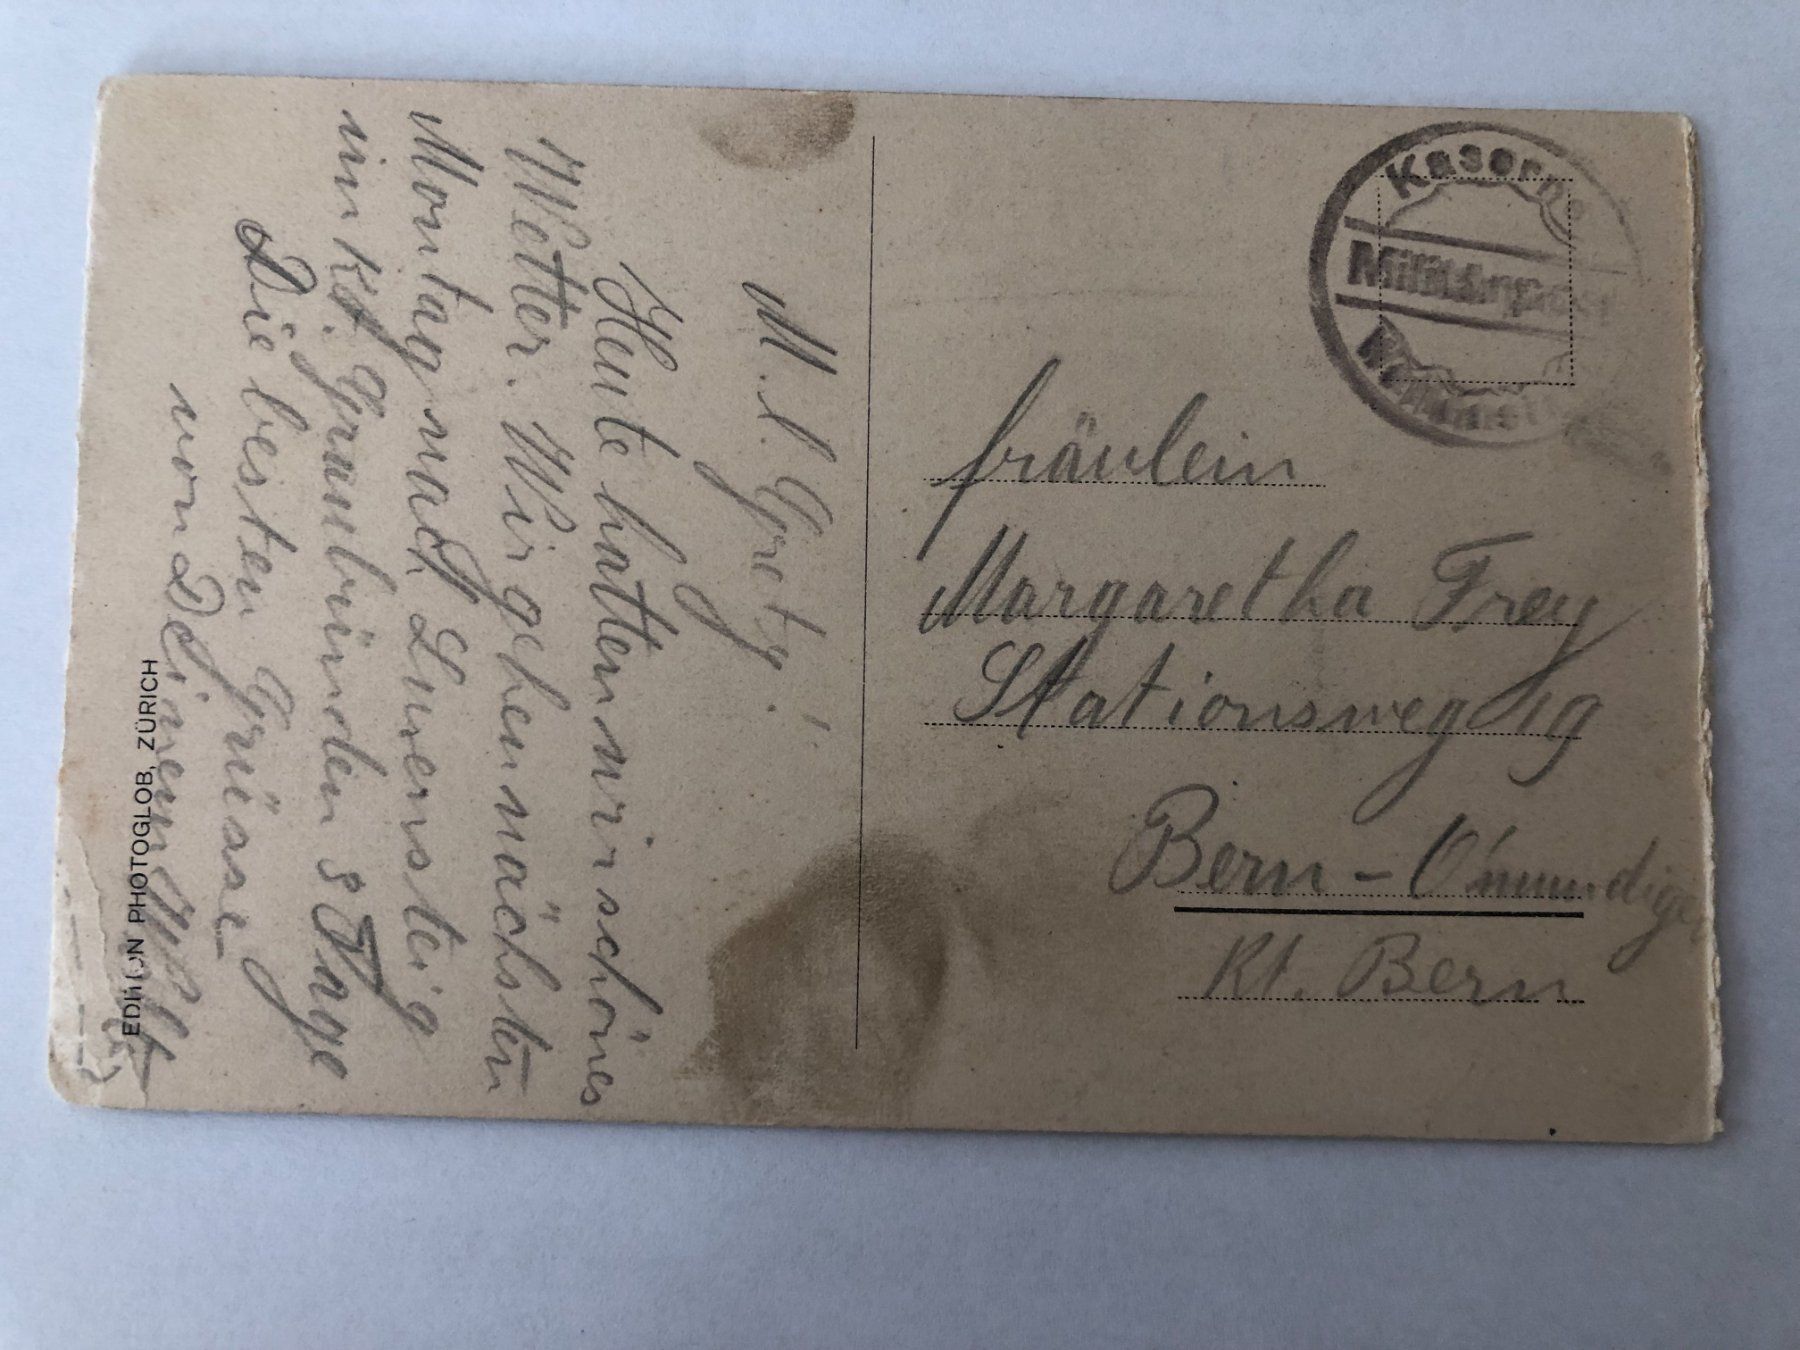 M. l. Grety!
Heute hatten wir schönes
Wetter. Wir gehen nächsten
Montag nach Luzensteig
im Kt. Graubünden 8 Tage
Die besten Grüsse
von Deinem
EDITION PHOTOGLOB, ZÜRICH
Kaserne
Militärpost
fräulein
Margaretha Frey
Stationsweg 19
Bern - O'mundigen
Kt. Bern